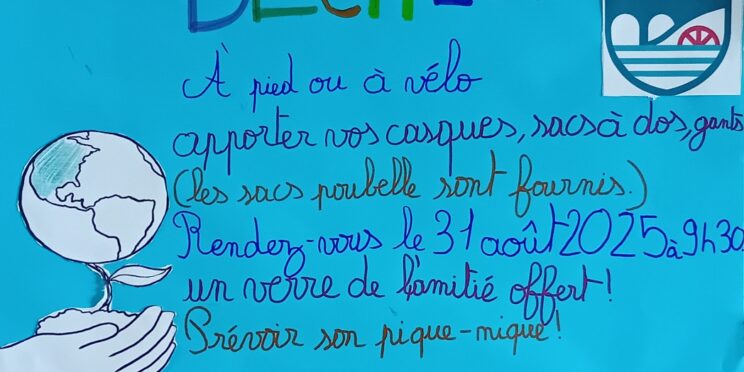 À pied ou à vélo
apporter vos casques, sacs à dos, gants
(les sacs poubelle sont fournis.)
Rendez-vous le 31 août 2025 à 9h30
un verre de l'amitié offert!
Prévoir son pique-nique!